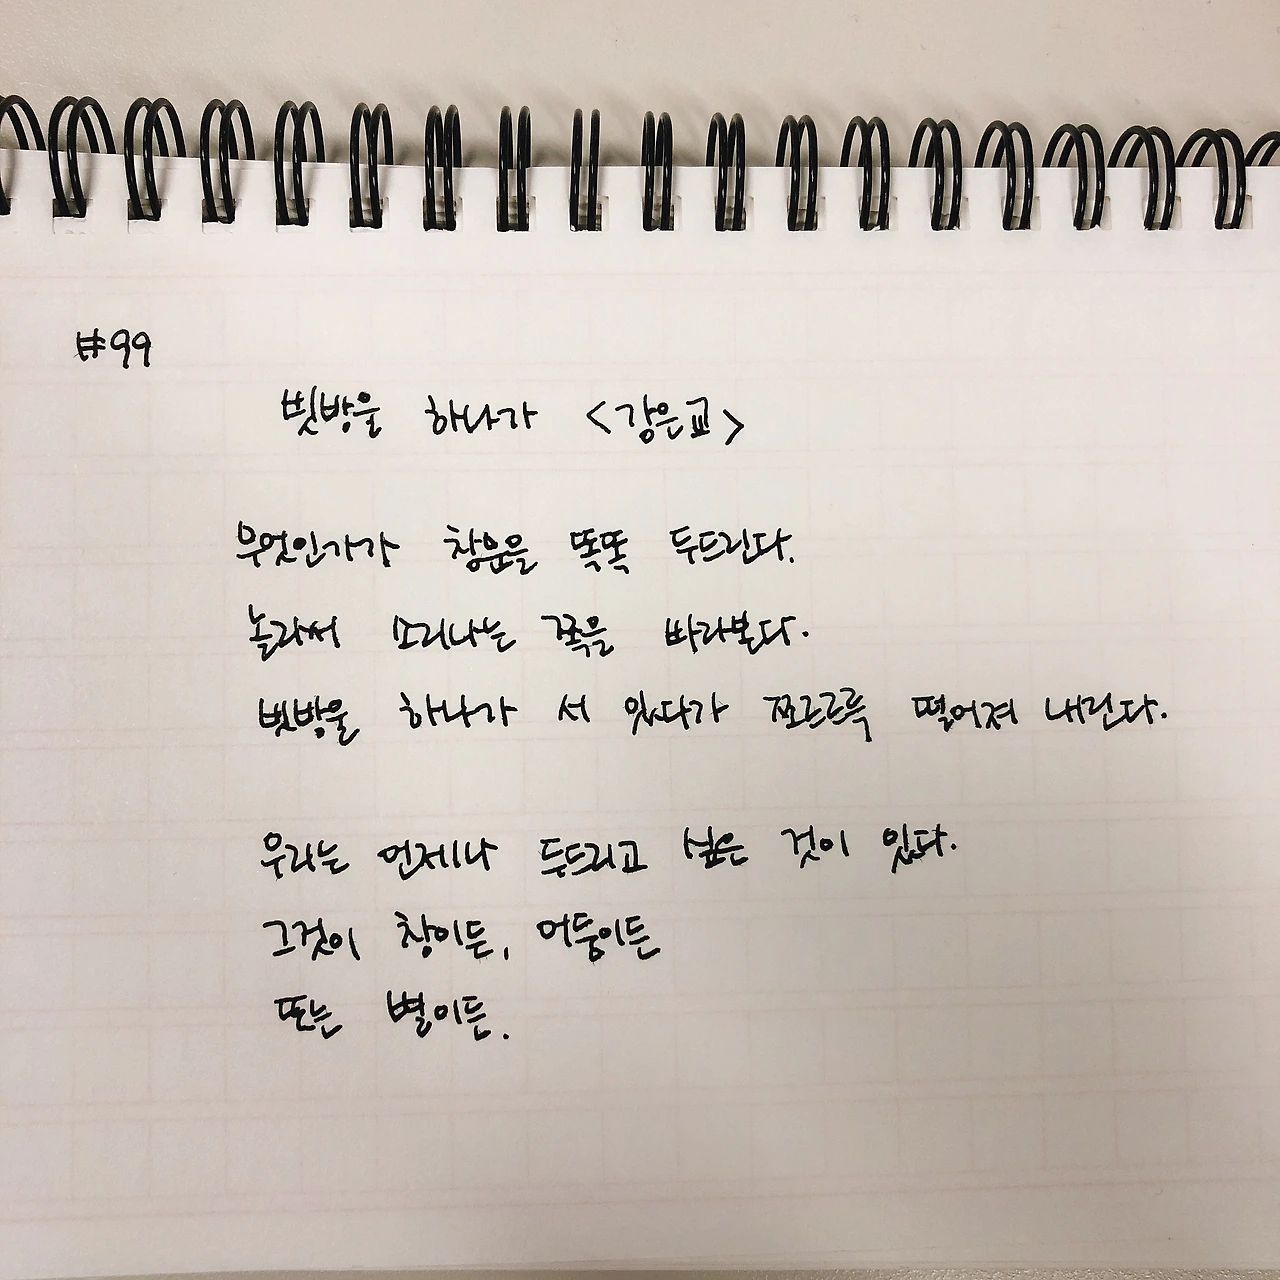 #99
빗방울 하나가 <강은교>
무엇인가가 창문을 똑똑 두드린다.
놀라서 소리나는 쪽을 바라본다.
빗방울 하나가 서 있다가 쪼르르륵 떨어져 내린다.
우리는 언제나 두드리고 싶은 것이 있다.
그것이 창이든, 어둠이든
또는 별이든.